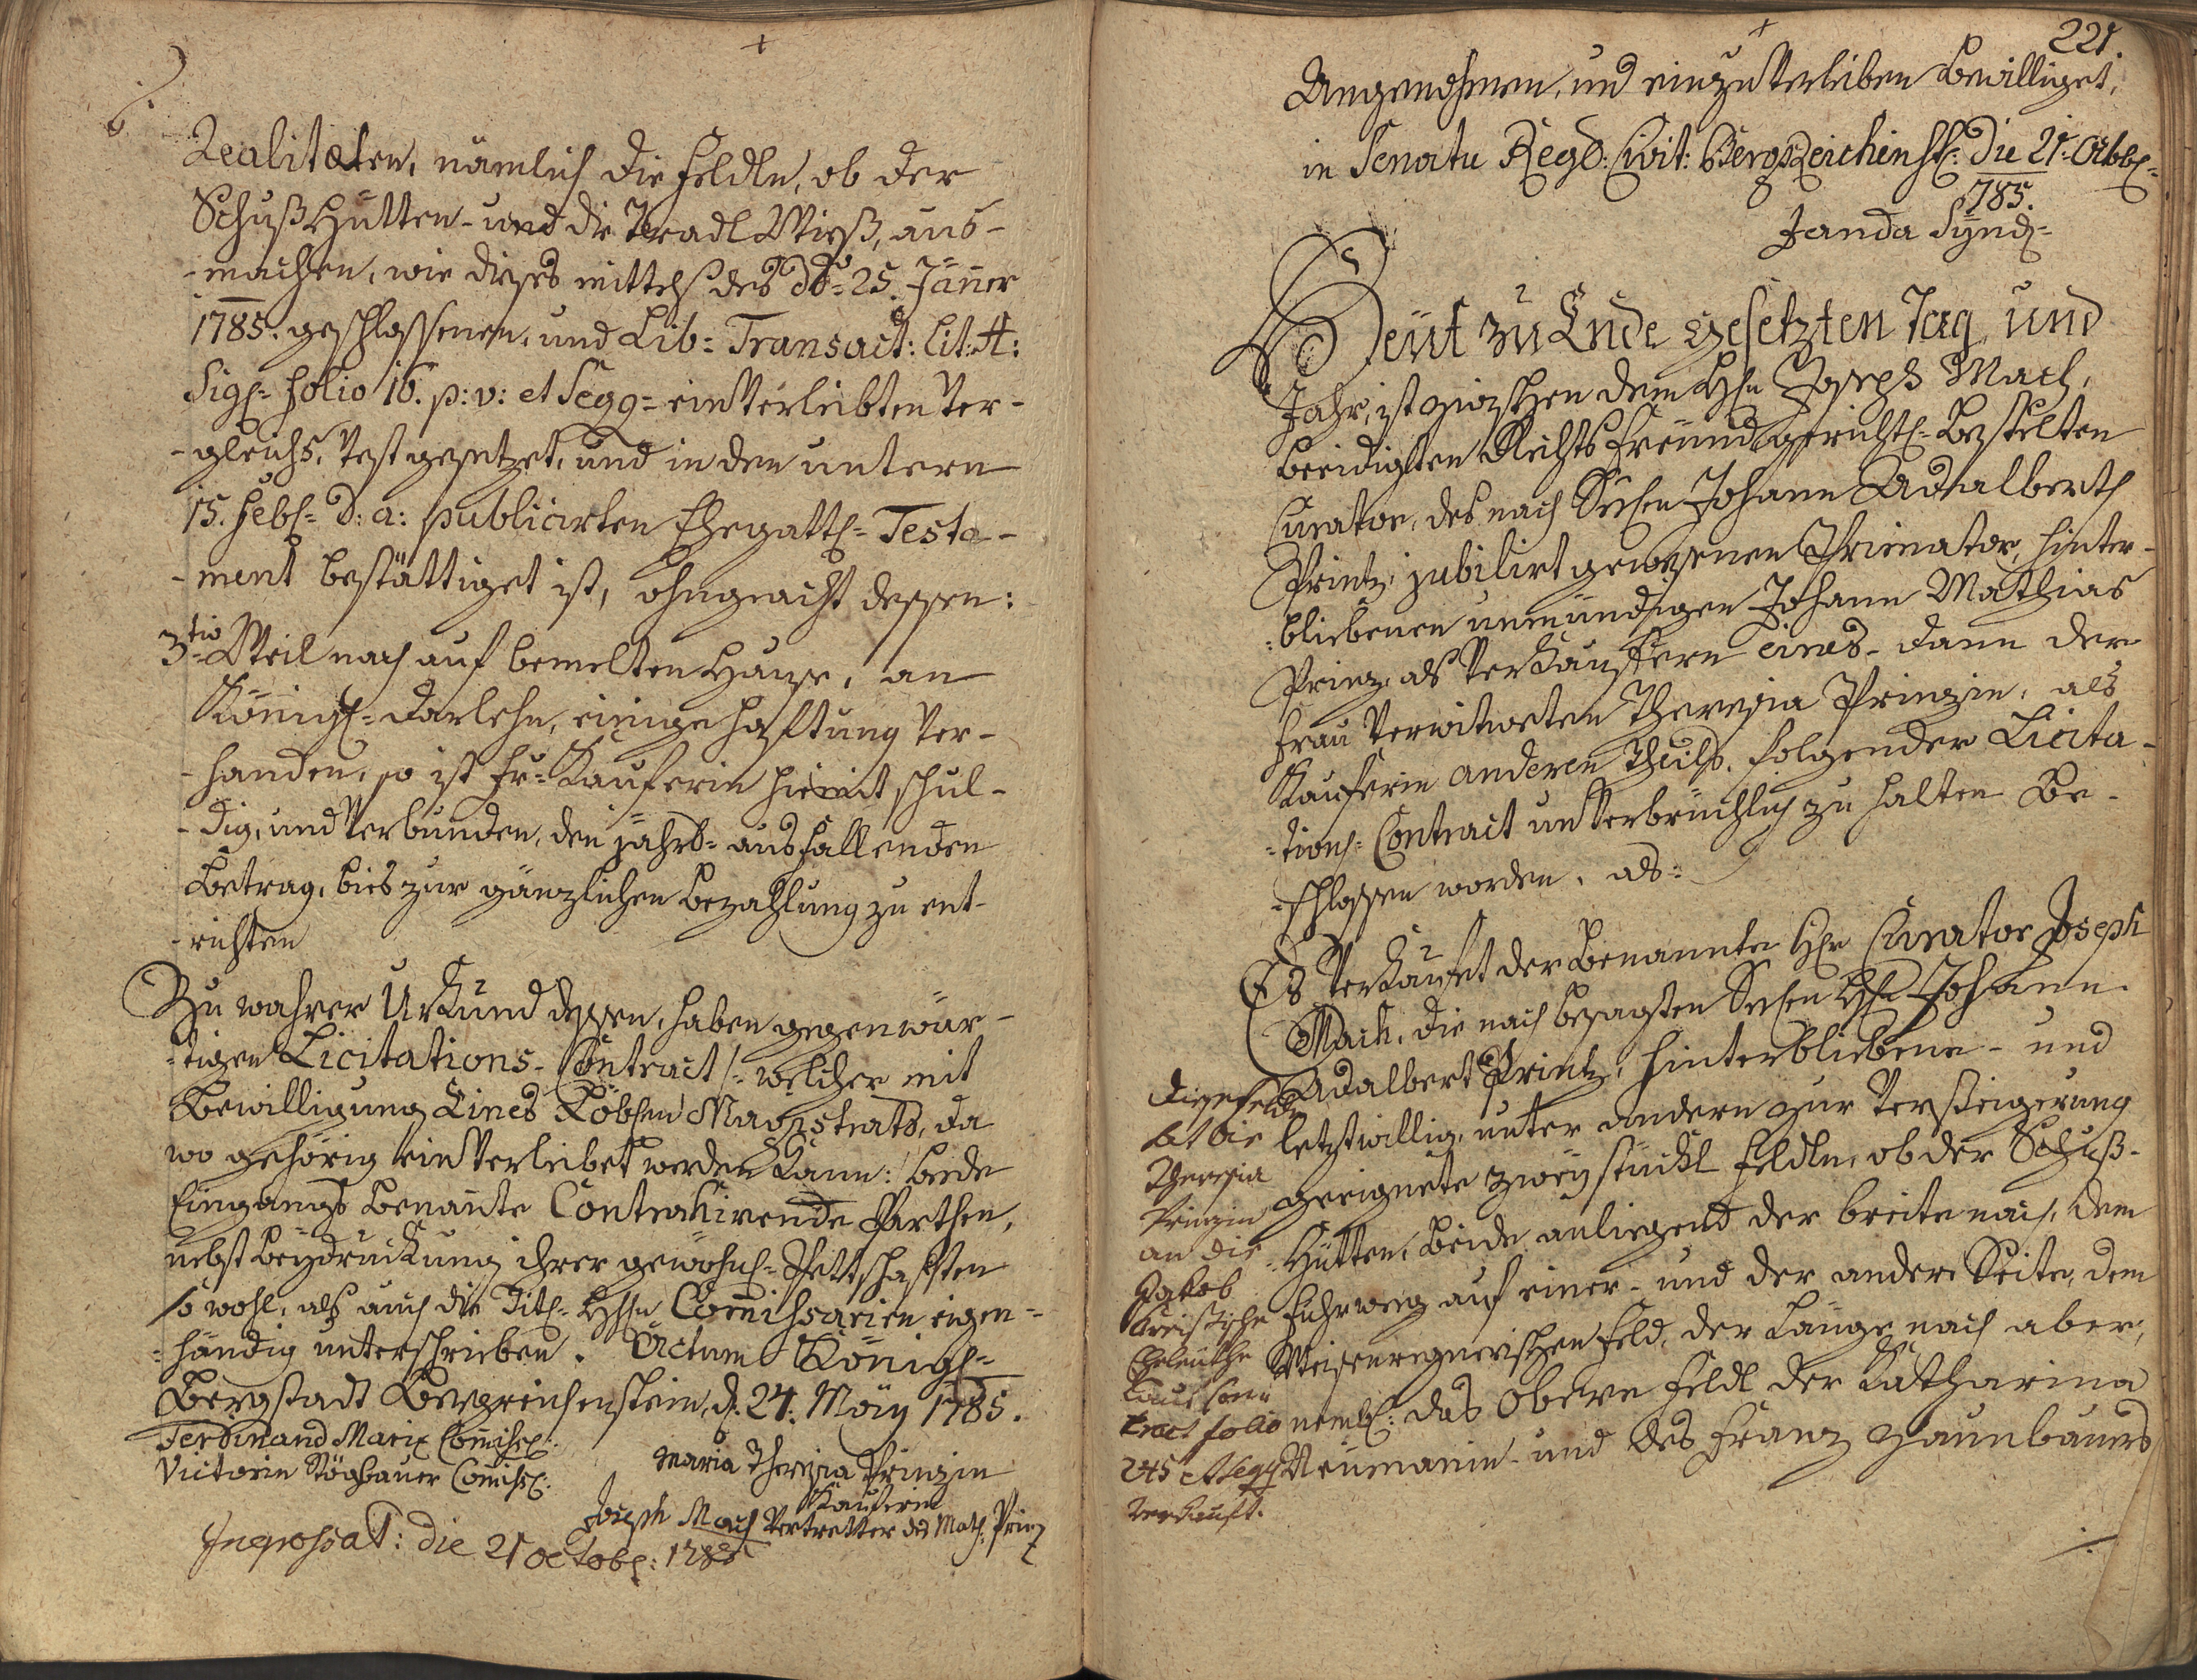 Realitæten, nämlich die Feldln, ob der
Schuß Hütten- und die Pradl Wieß, aus-
-machen, wie dieses mittelst des dto 25. Jäner
1785. geschlossenen, und Lib: Transact: Lit: A:
Sig: folio 16. p: v: et Seqq: einverleibten Ver-
-gleichs, vest gesetzet, und in den untern
15. Feb: d: a: publicirten Ehegattl: Testa-
-ment bestättiget ist, ohngeacht dessen:
3tio Weil nach auf bemelten Hause, an
Königl: Darlehn, einige Hafftung ver-
-handen, so ist Fr: Kauferin hiemit schul-
-dig, und verbunden, den jahrs- ausfallenden
Betrag, bies zur gänzlichen Bezahlung zu ent-
-richten
Zu wahrer Urkund dessen, haben gegenwär-
-tigen Licitations-Contract /: welcher mit
Bewilligung Eines Löbsen Magistrats, da
wo gehörig einverleibet werden kann: / beede
Eingangs benante Contrahirende Parthen,
nebst Beydruckung ihrer gewöhnl: Pettschaften
so wohl, als auch die Titl: Hhn Comissarien eigen-
-händig unterschrieben. Actum Königl:
Bergstadt Bergreichenstein, d: 24: Maÿ 1785.
Ferdinand Marix Comiss:
Victorin Stögbauer Comiss:
Maria Theresia Prinzin
Kauferin
Joseph Mach Vertretter des Math: Prinz
Ingrossat: die 21 Octob: 1785
221.
Angenohmen, und einzuverleiben bewilliget,
in Senatu Rego: Civit: BergReichenst: Die 21: Octob:
785.
Janda Sÿnd:
Heut zu Ende gesetzten Tag und
Jahr, ist zwischen dem Hhn Joseph Mach,
beeidigten Rechts Freund gerichtl: bestelten
Curator, des nach Seeln Johann Adalbert
Printz, jubilirt gewesenen Primator, hinter-
-bliebenen unmündigen Johann Mathias
Prinz, als Verkäuffern eines- dann der
Frau verwitweten Theresia Prinzin, als
Kauferin anderen Theils, folgender Licita-
-tions-Contract unverbrüchlich zu halten be-
-schlossen worden, als:
Es verkauft der benannte Hr Curator Joseph
Mach, die nach besagten Seeln Hhn Johann
Adalbert Printz, hinterbliebene- und
letztwillig, unter andern zur Versteigerung
geeignete zweÿ stückl Feldln, ob der Schuß-
-Hütten, beide anliegend der breite nach, dem
Fuhrweg auf einer- und der andern Seite, dem
Weisenregnerischen Feld, der Länge nach aber,
neml: das obere Feldl der Katharina
Neumanin- und des Franz Zaunbauers
Diese Felder
hat die
Theresia
Prinzin
an die
Jakob
Eheleuthe
laut Con-
tract folio
245 et seqq
verkauft.